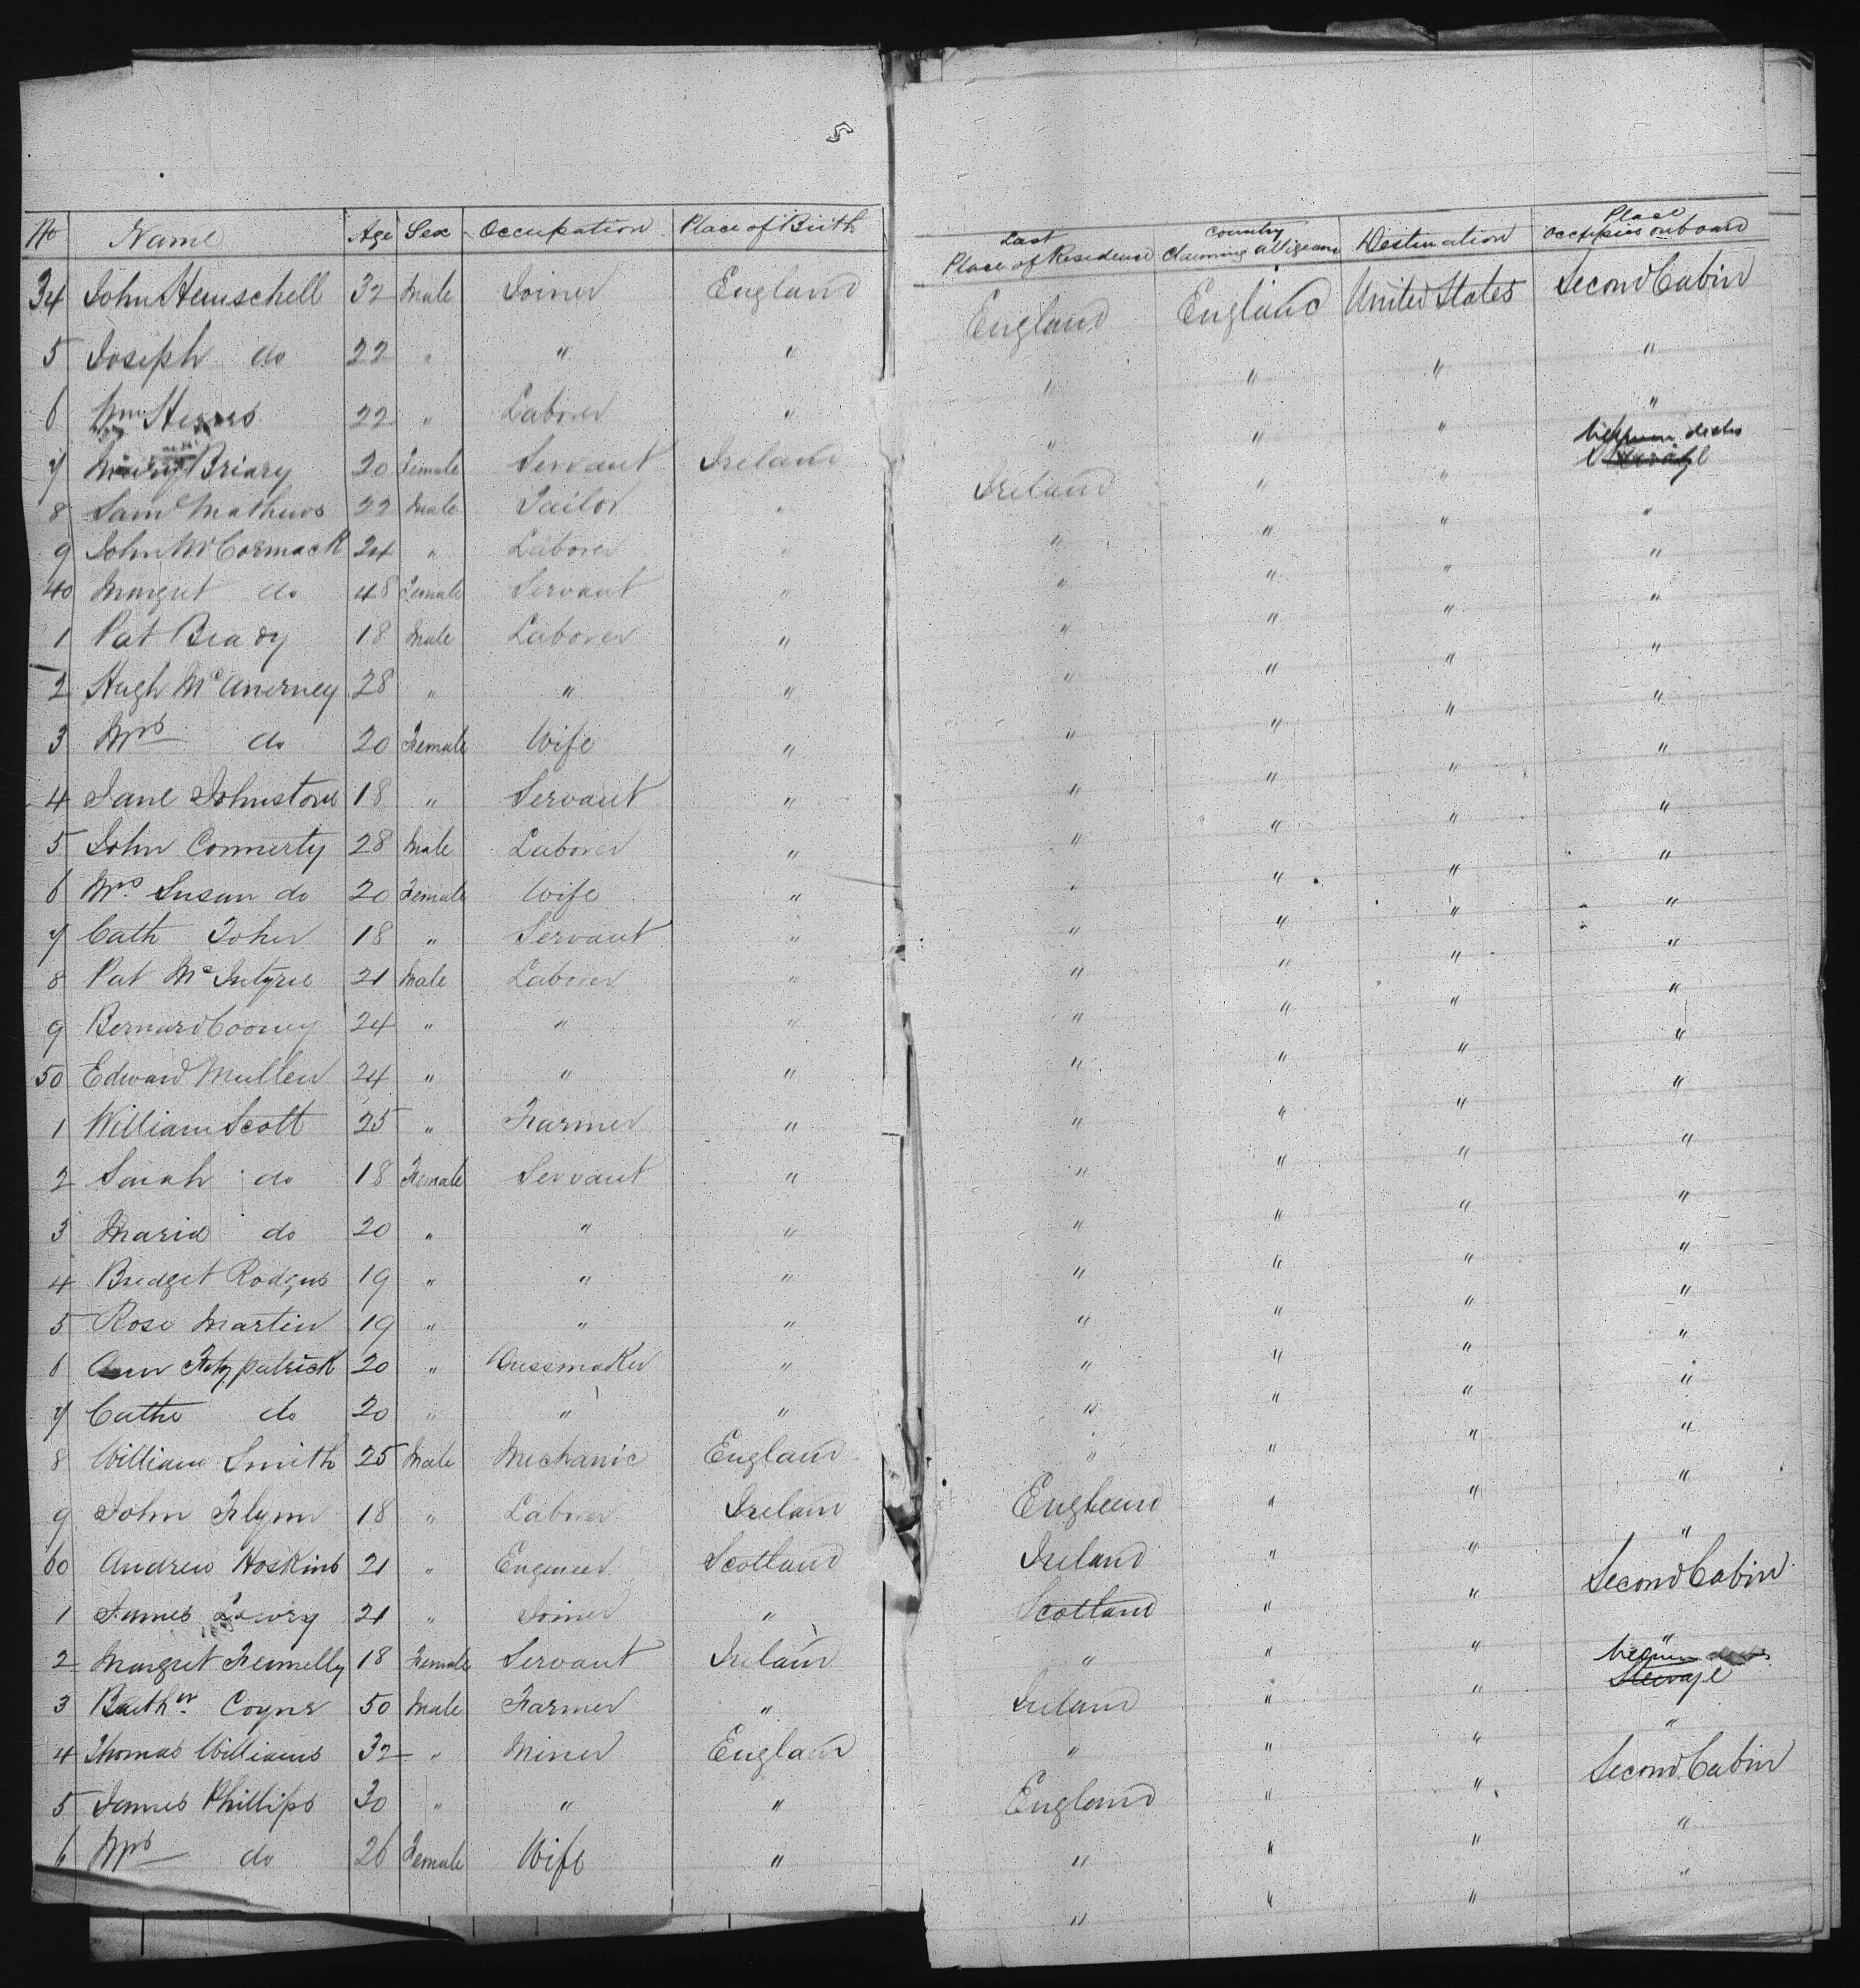 5
No Name Age Sex Occupation Place of Birth Last Place of Residence Country Claiming allegeance Destination Place occupies onboard
34 John Henschell 32 Male Joiner England England England United States Second Cabin
5 Joseph do 22 " " " " " " "
6 Wm 22 " Laborer " " " " "
7 Mary Briary 20 Female Servant Ireland Ireland " " between decks Steerage
8 Saml Mathews 22 Male Tailor " " " " "
9 John McCormack 24 " Laborer " " " " "
40 Margret do 48 Female Servant " " " " "
1 Pat Brady 18 Male Laborer " " " " "
2 Hugh McAnerney 28 " " " " " " "
3 Mrs do 20 Female Wife " " " " "
4 Jane Johnstone 18 " Servant " " " " "
5 John Connerty 28 Male Laborer " " " " "
6 Mrs. Susan do 20 Female Wife " " " " "
7 Cath Toher 18 " Servant " " " " "
8 Pat McIntyre 21 Male Laborer " " " " "
9 Bernard Cooney 24 " " " " " " "
50 Edward Mullen 24 " " " " " " "
1 William Scott 25 " Farmer " " " " "
2 Sarah do 18 Female Servant " " " " "
3 Maria do 20 " " " " " " "
4 Bridget Rodgers 19 " " " " " " "
5 Rose Martin 19 " " " " " " "
6 Ann Fitzpatrick 20 " Dressmaker " " " " "
7 Cathe do 20 " " " " " " "
8 William Smith 25 Male Mechanic England England " " "
9 John Flynn 18 " Laborer Ireland Ireland " " "
60 Andrew Hoskins 21 " Engineer Scotland Scotland " " Second Cabin
1 James Lowry 21 " Joiner " " " " "
2 Margret Fennelly 18 Female Servant Ireland Ireland " " between decks Steerage
3 Barthw. Coyne 50 Male Farmer " " " " "
4 Thomas Williams 32 " Miner England England " " Second Cabin
5 James Phillips 30 " " " " " " "
6 Mrs do 26 Female Wife " " " " "